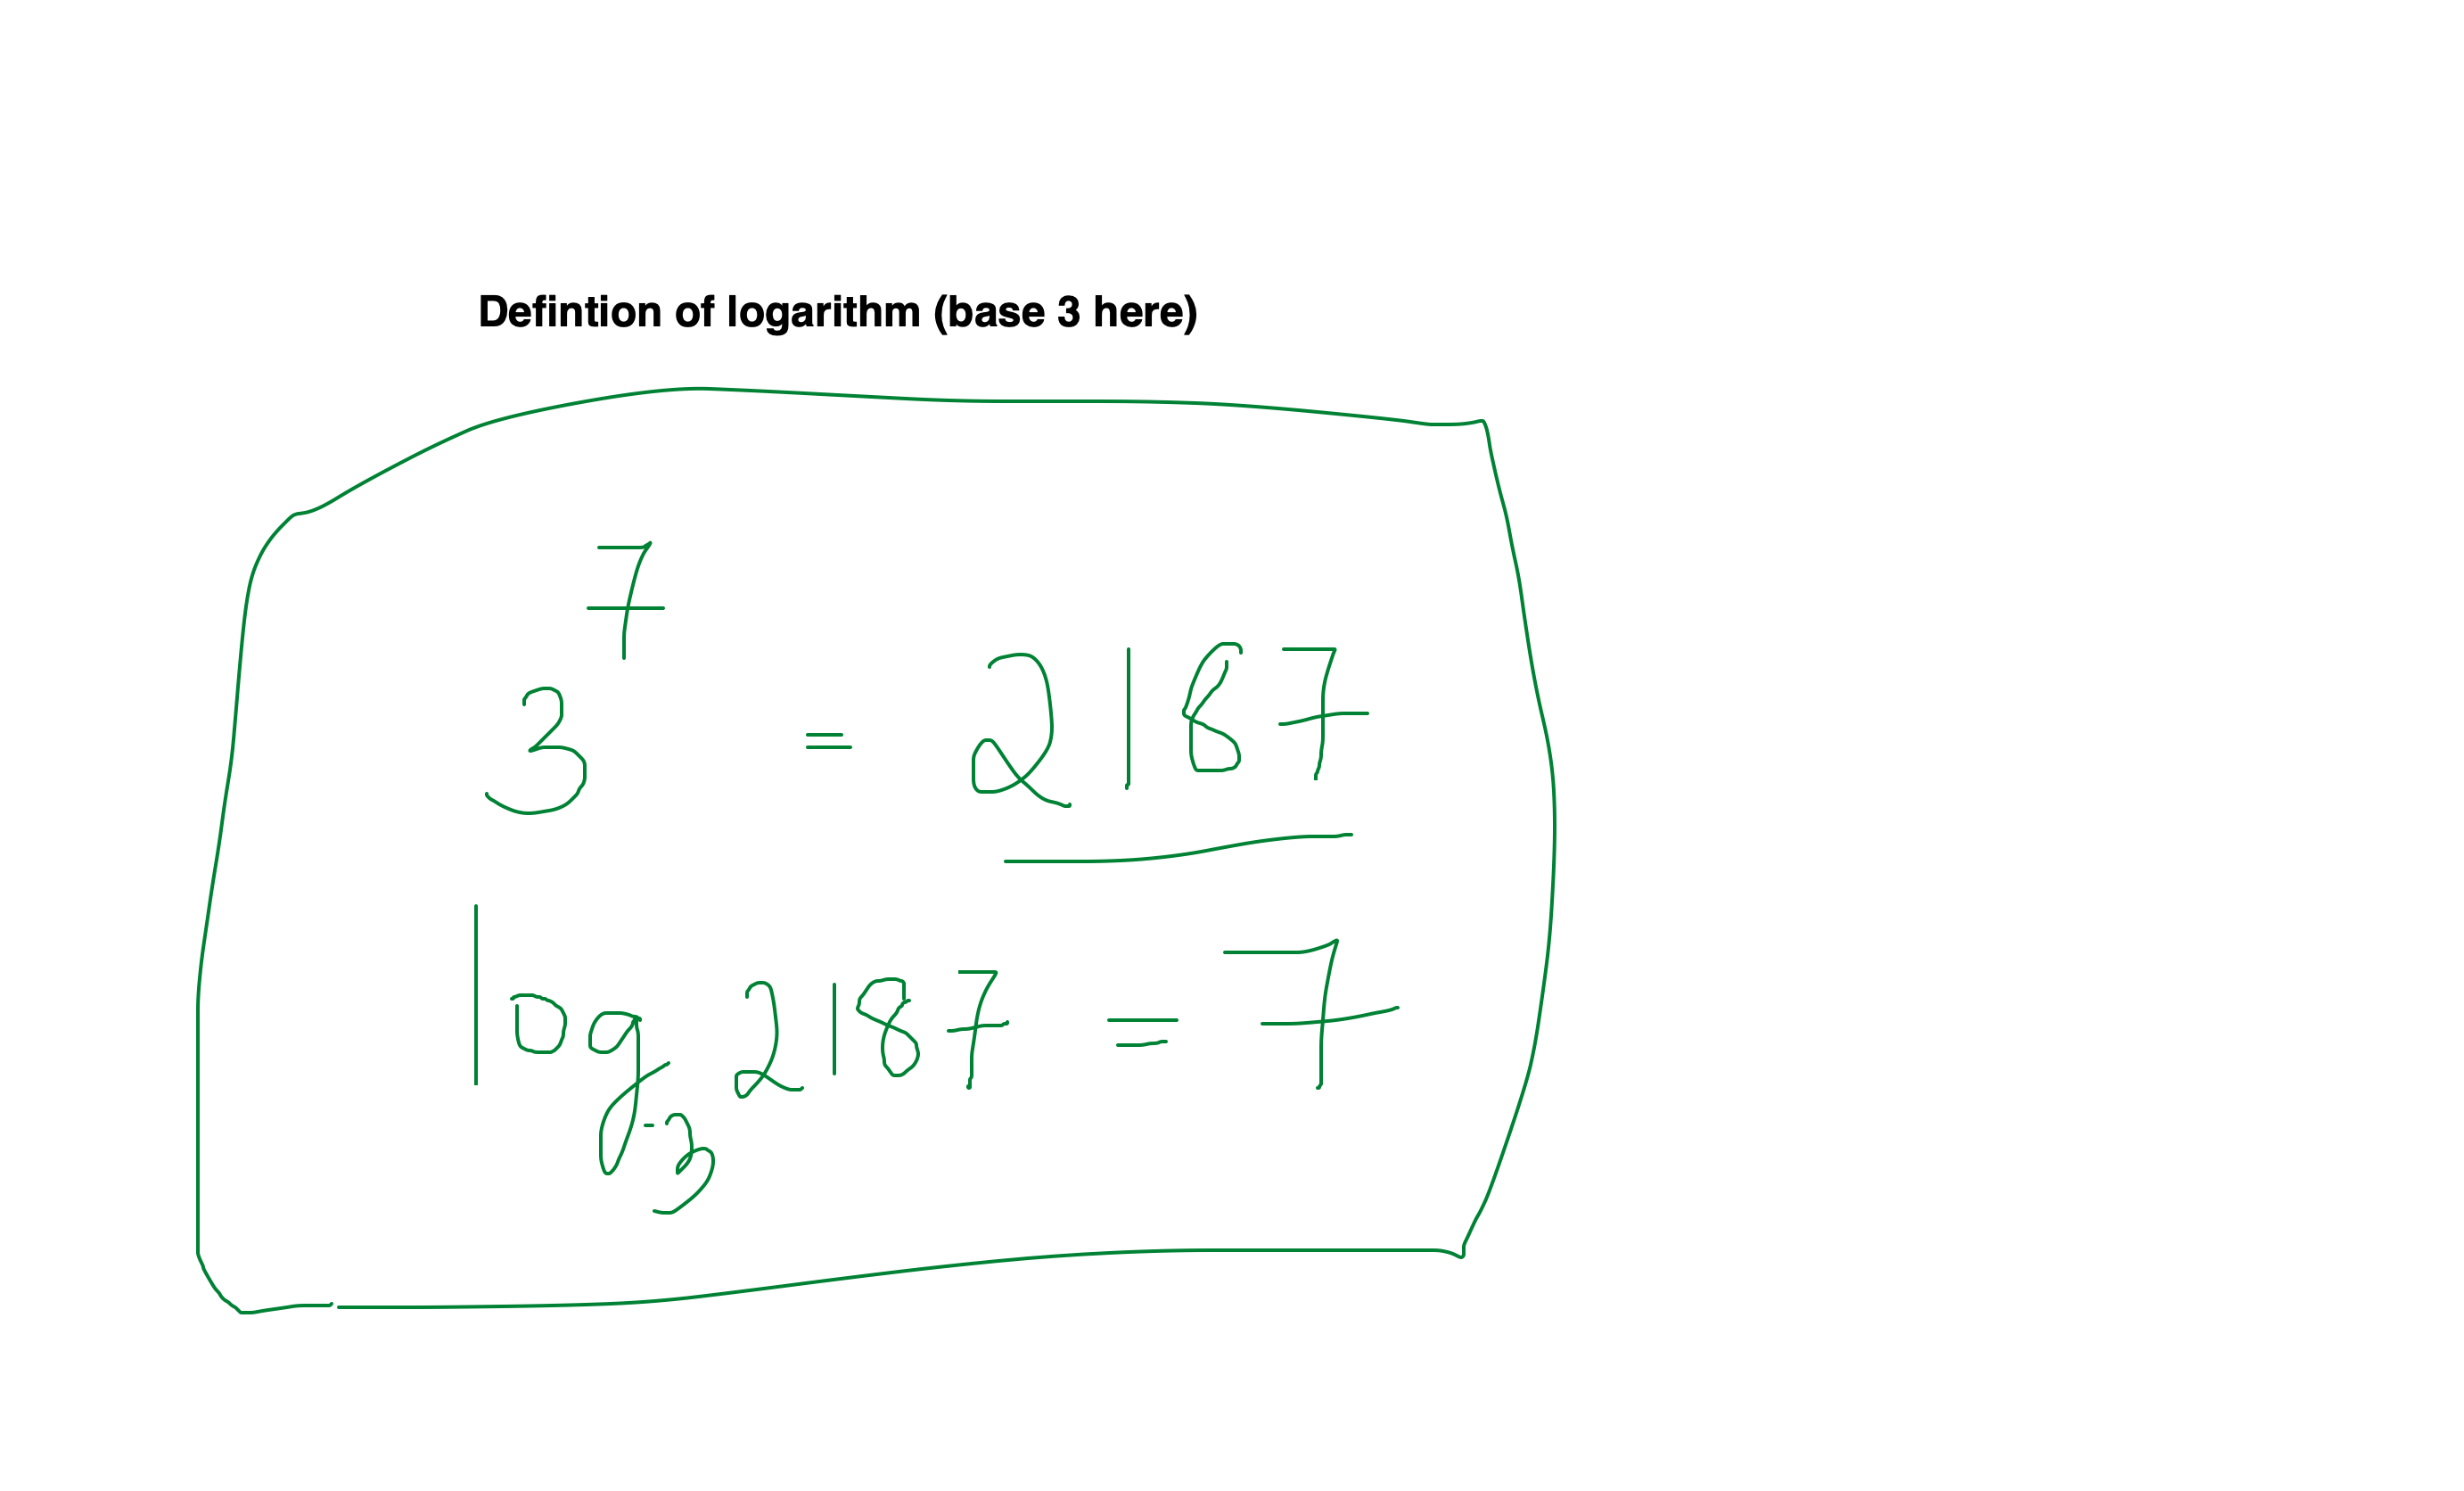 Defintion of logarithm (base 3 here)
3⁷ = 2187
log₃ 2187 = 7